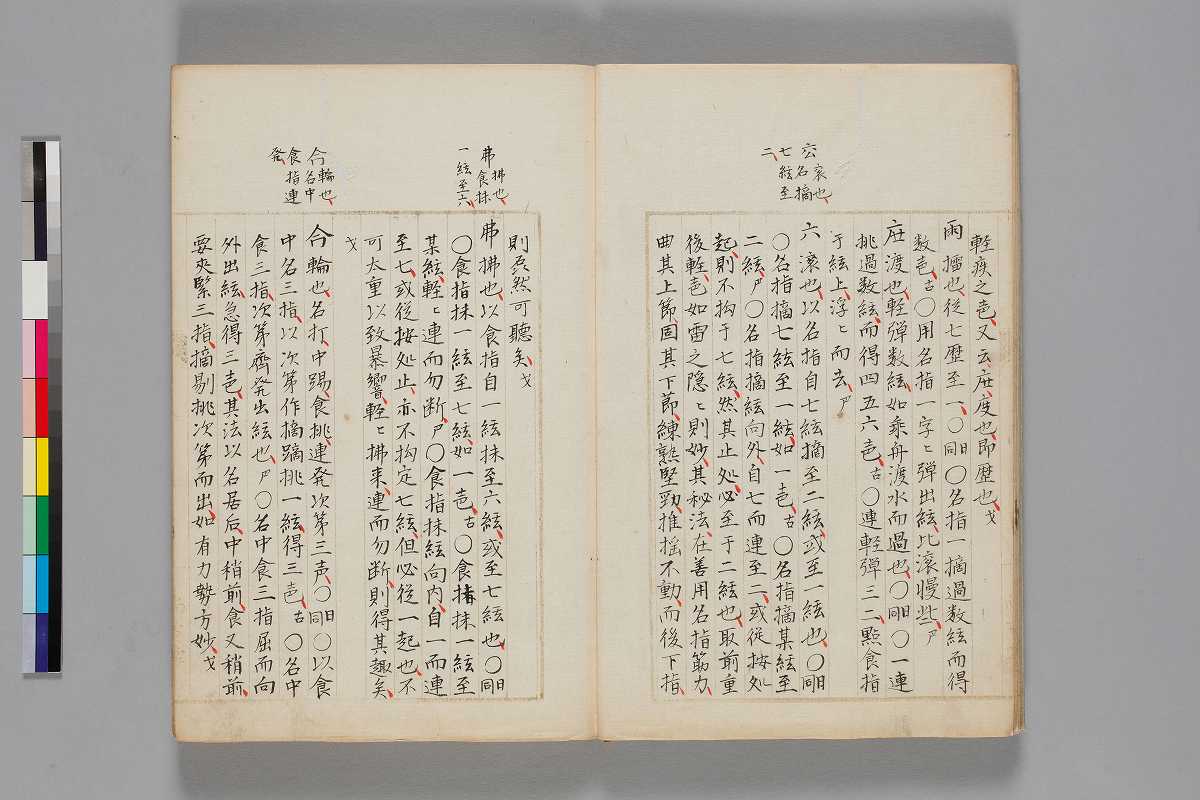 宍 滾也
名摘
七絃至
二
軽疾之色又云庶度也即歴也戈
雨 擂也従七歴至一〇同〇名指一摘過数絃而得
数色古〇用名指一字〻弾出絃比滾慢些尸
庶 渡也軽弾数絃如乘舟渡水而過也〇同〇一連
挑過数絃而得四五六色古〇連軽弾三二點食指
于絃上浮〻而去尸
六 滾也以名指自七絃摘至二絃或至一絃也〇同
〇名指摘七絃至一絃如一色古〇名指摘某絃至
二絃尸〇名指摘絃向外自七而連至二或従按処
起則不拘于七絃然其止処必至于二絃也取前重
後軽色如雷之隠〻則妙其秘法在善用名指筋力
曲其上節固其下莭練熟堅勁推揺不動而後下指
弗 拂也
食抹
一絃至六
合 輪也
名中
食指連
発
則天然可聽矣戈
弗 拂也以食指自一絃抹至六絃或至七絃也〇同
〇食指抹一絃至七絃如一色古〇食指抹一絃至
某絃軽〻連而勿断尸〇食指抹絃向内自一而連
至七或従按処止亦不拘定七絃但必従一起也不
可太重以致暴響軽〻拂来連而勿断則得其趣矣
戈
合 輪也名打中踢食挑連発次第三声〇同〇以食
中名三指以次第作摘踢挑一絃得三色古〇名中
食三指次第齊発出絃也尸〇名中食三指屈而向
外出絃急得三色其法以名居后中稍前食又稍前
要夾緊三指摘剔挑次第而出如有力勢方妙戈